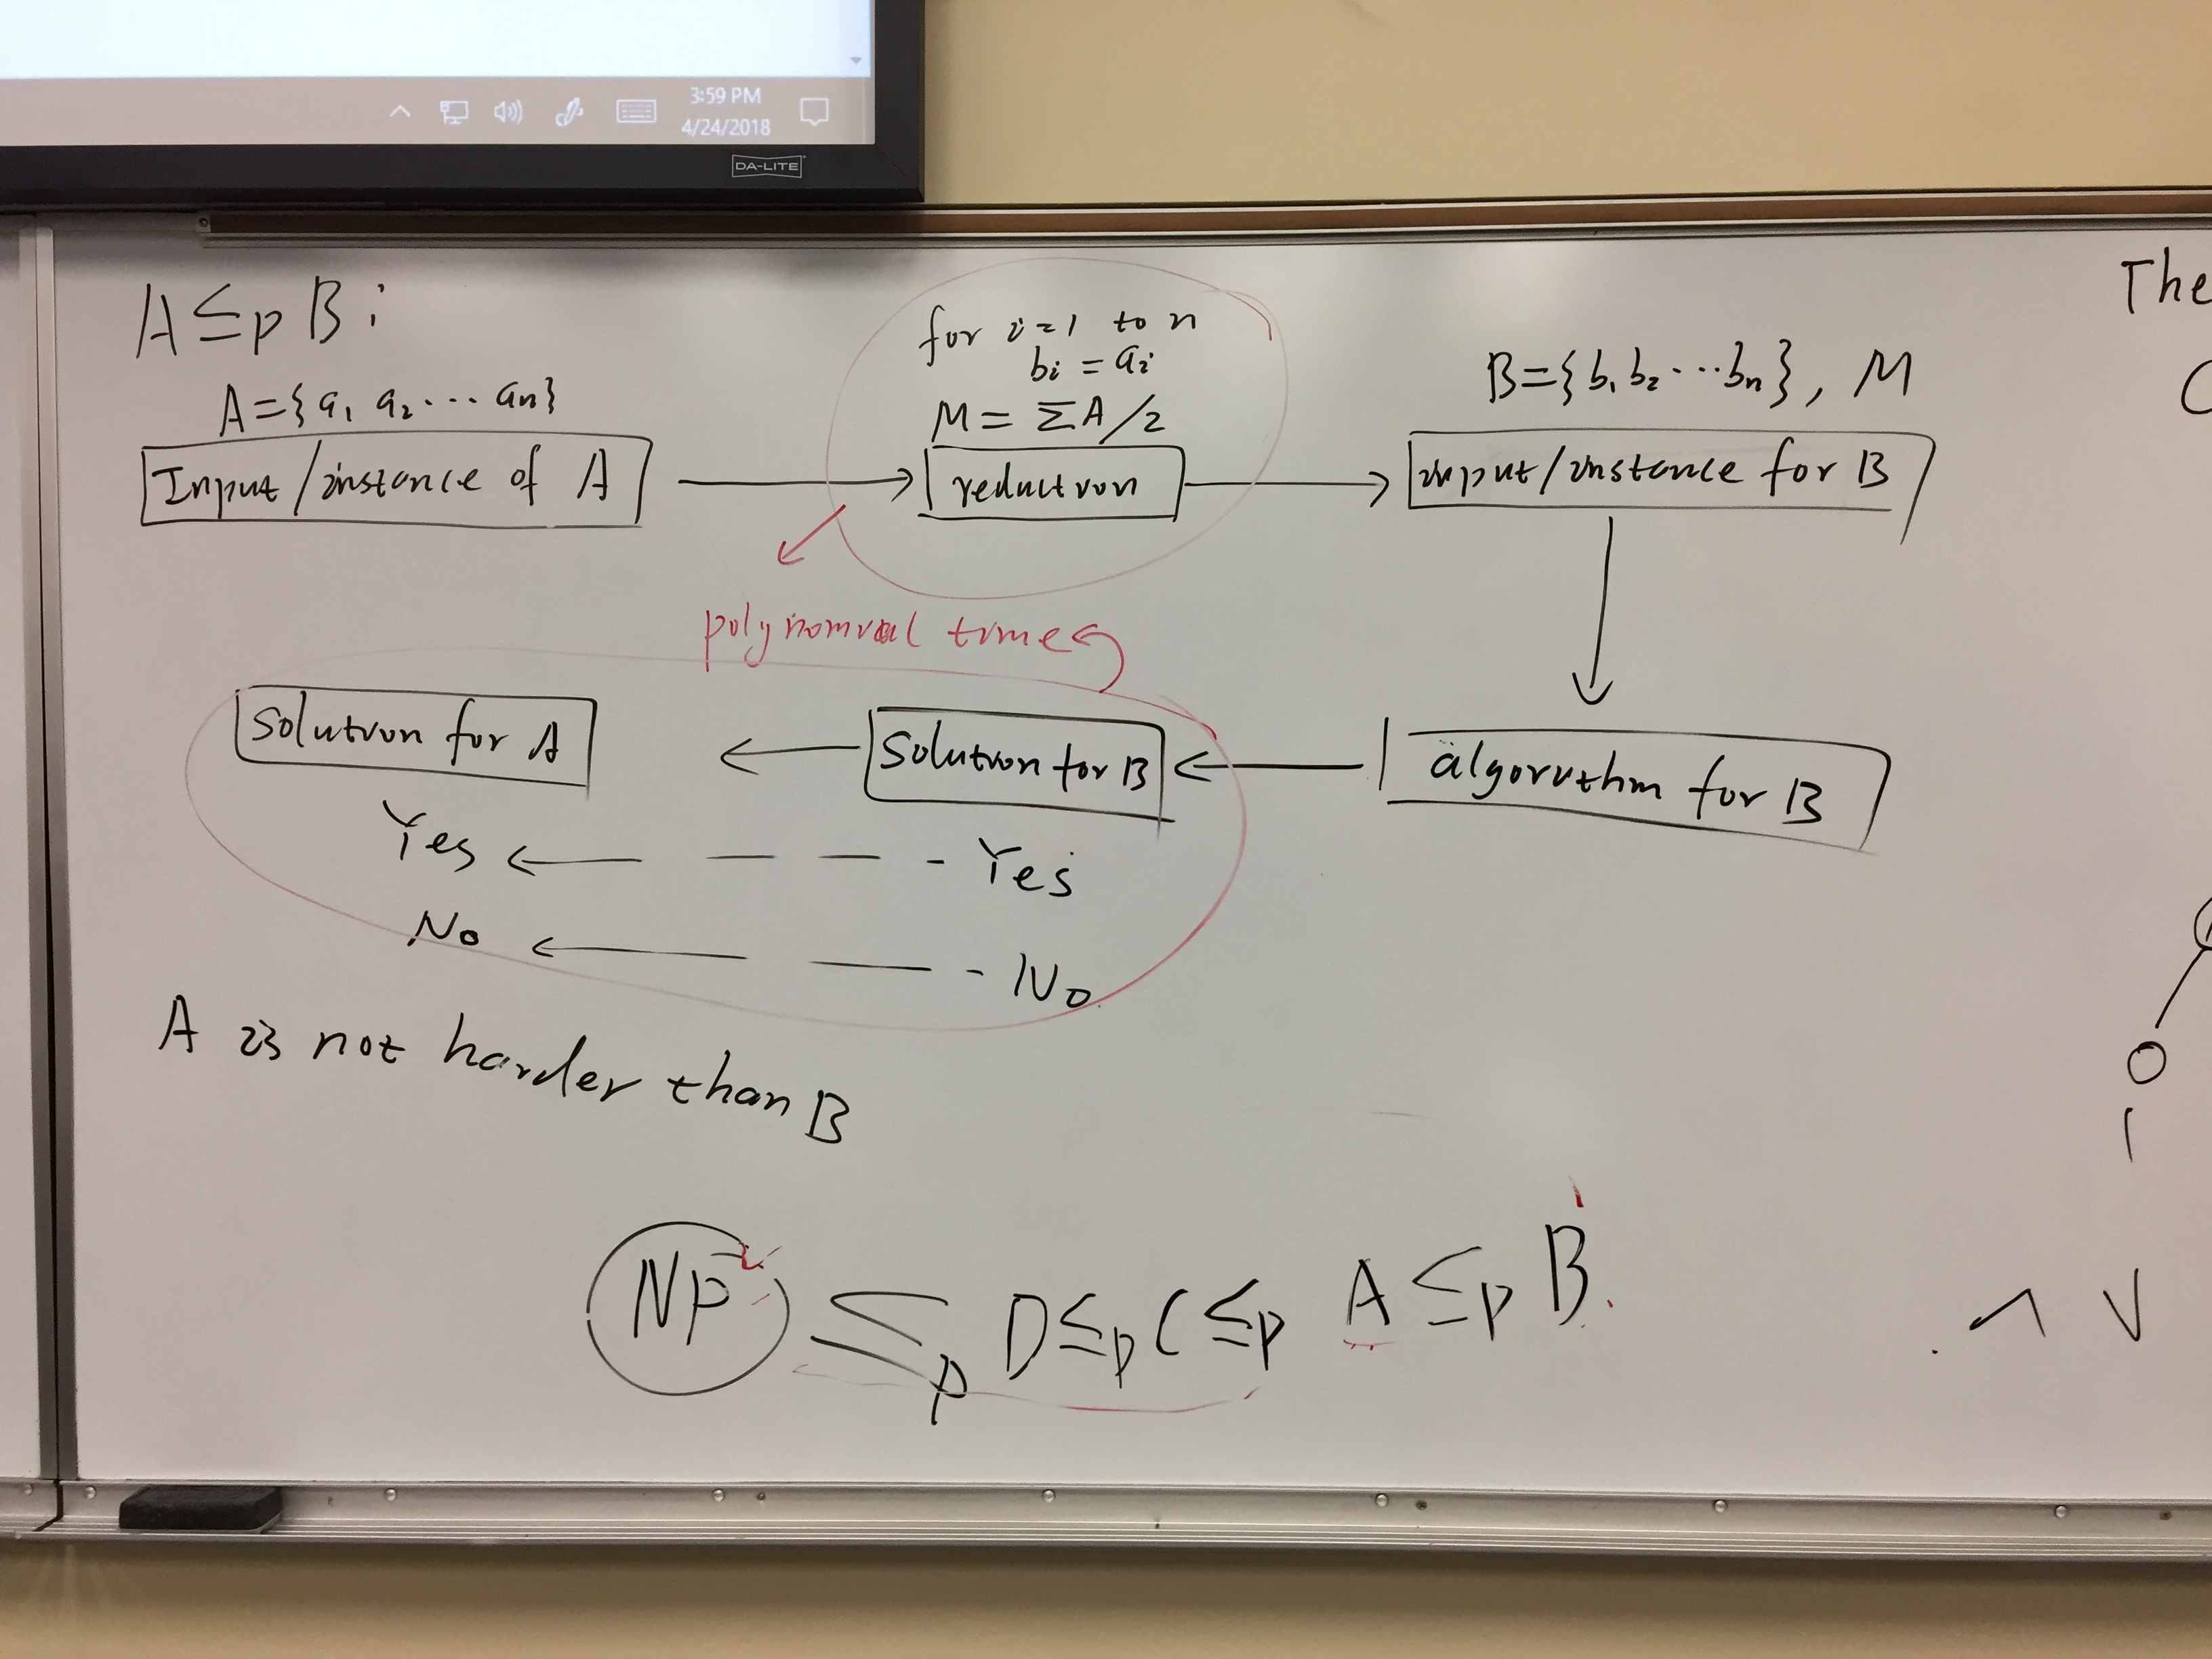 3:59 PM
4/24/2018
DA-LITE
A ≤p B :
A={a1 a2 ... an}
Input/instance of A
for i=1 to n
bi = ai
M = ΣA/2
reduction
B={b1 b2 ... bn}, M
input/instance for B
polynomial time
Solution for A
Solution for B
algorithm for B
Yes
Yes
No
No
A is not harder than B
NP ≤p D ≤p C ≤p A ≤p B
The
∧ ∨